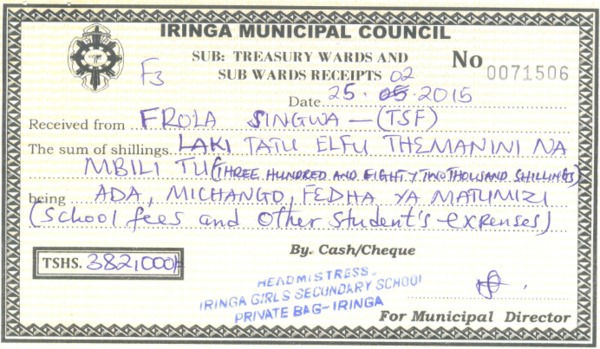 IRINGA MUNICIPAL COUNCIL
SUB: TREASURY WARDS AND
SUB WARDS RECEIPTS
No 0071506
F3
02
Date 25. 05. 2015
Received from FROLA SINGWA – (TSF)
The sum of shillings. LAKI TATU ELFU THEMANINI NA
MBILI TU (THREE HUNDRED AND EIGHTY TWO THOUSAND SHILLINGS)
being ADA, MICHANGO, FEDHA YA MATUMIZI
(School fees and other student's expenses)
By. Cash/Cheque
TSHS. 382,000/=
HEADMISTRESS.
IRINGA GIRLS SECUNDARY SCHOOL
PRIVATE BAG-IRINGA
For Municipal Director